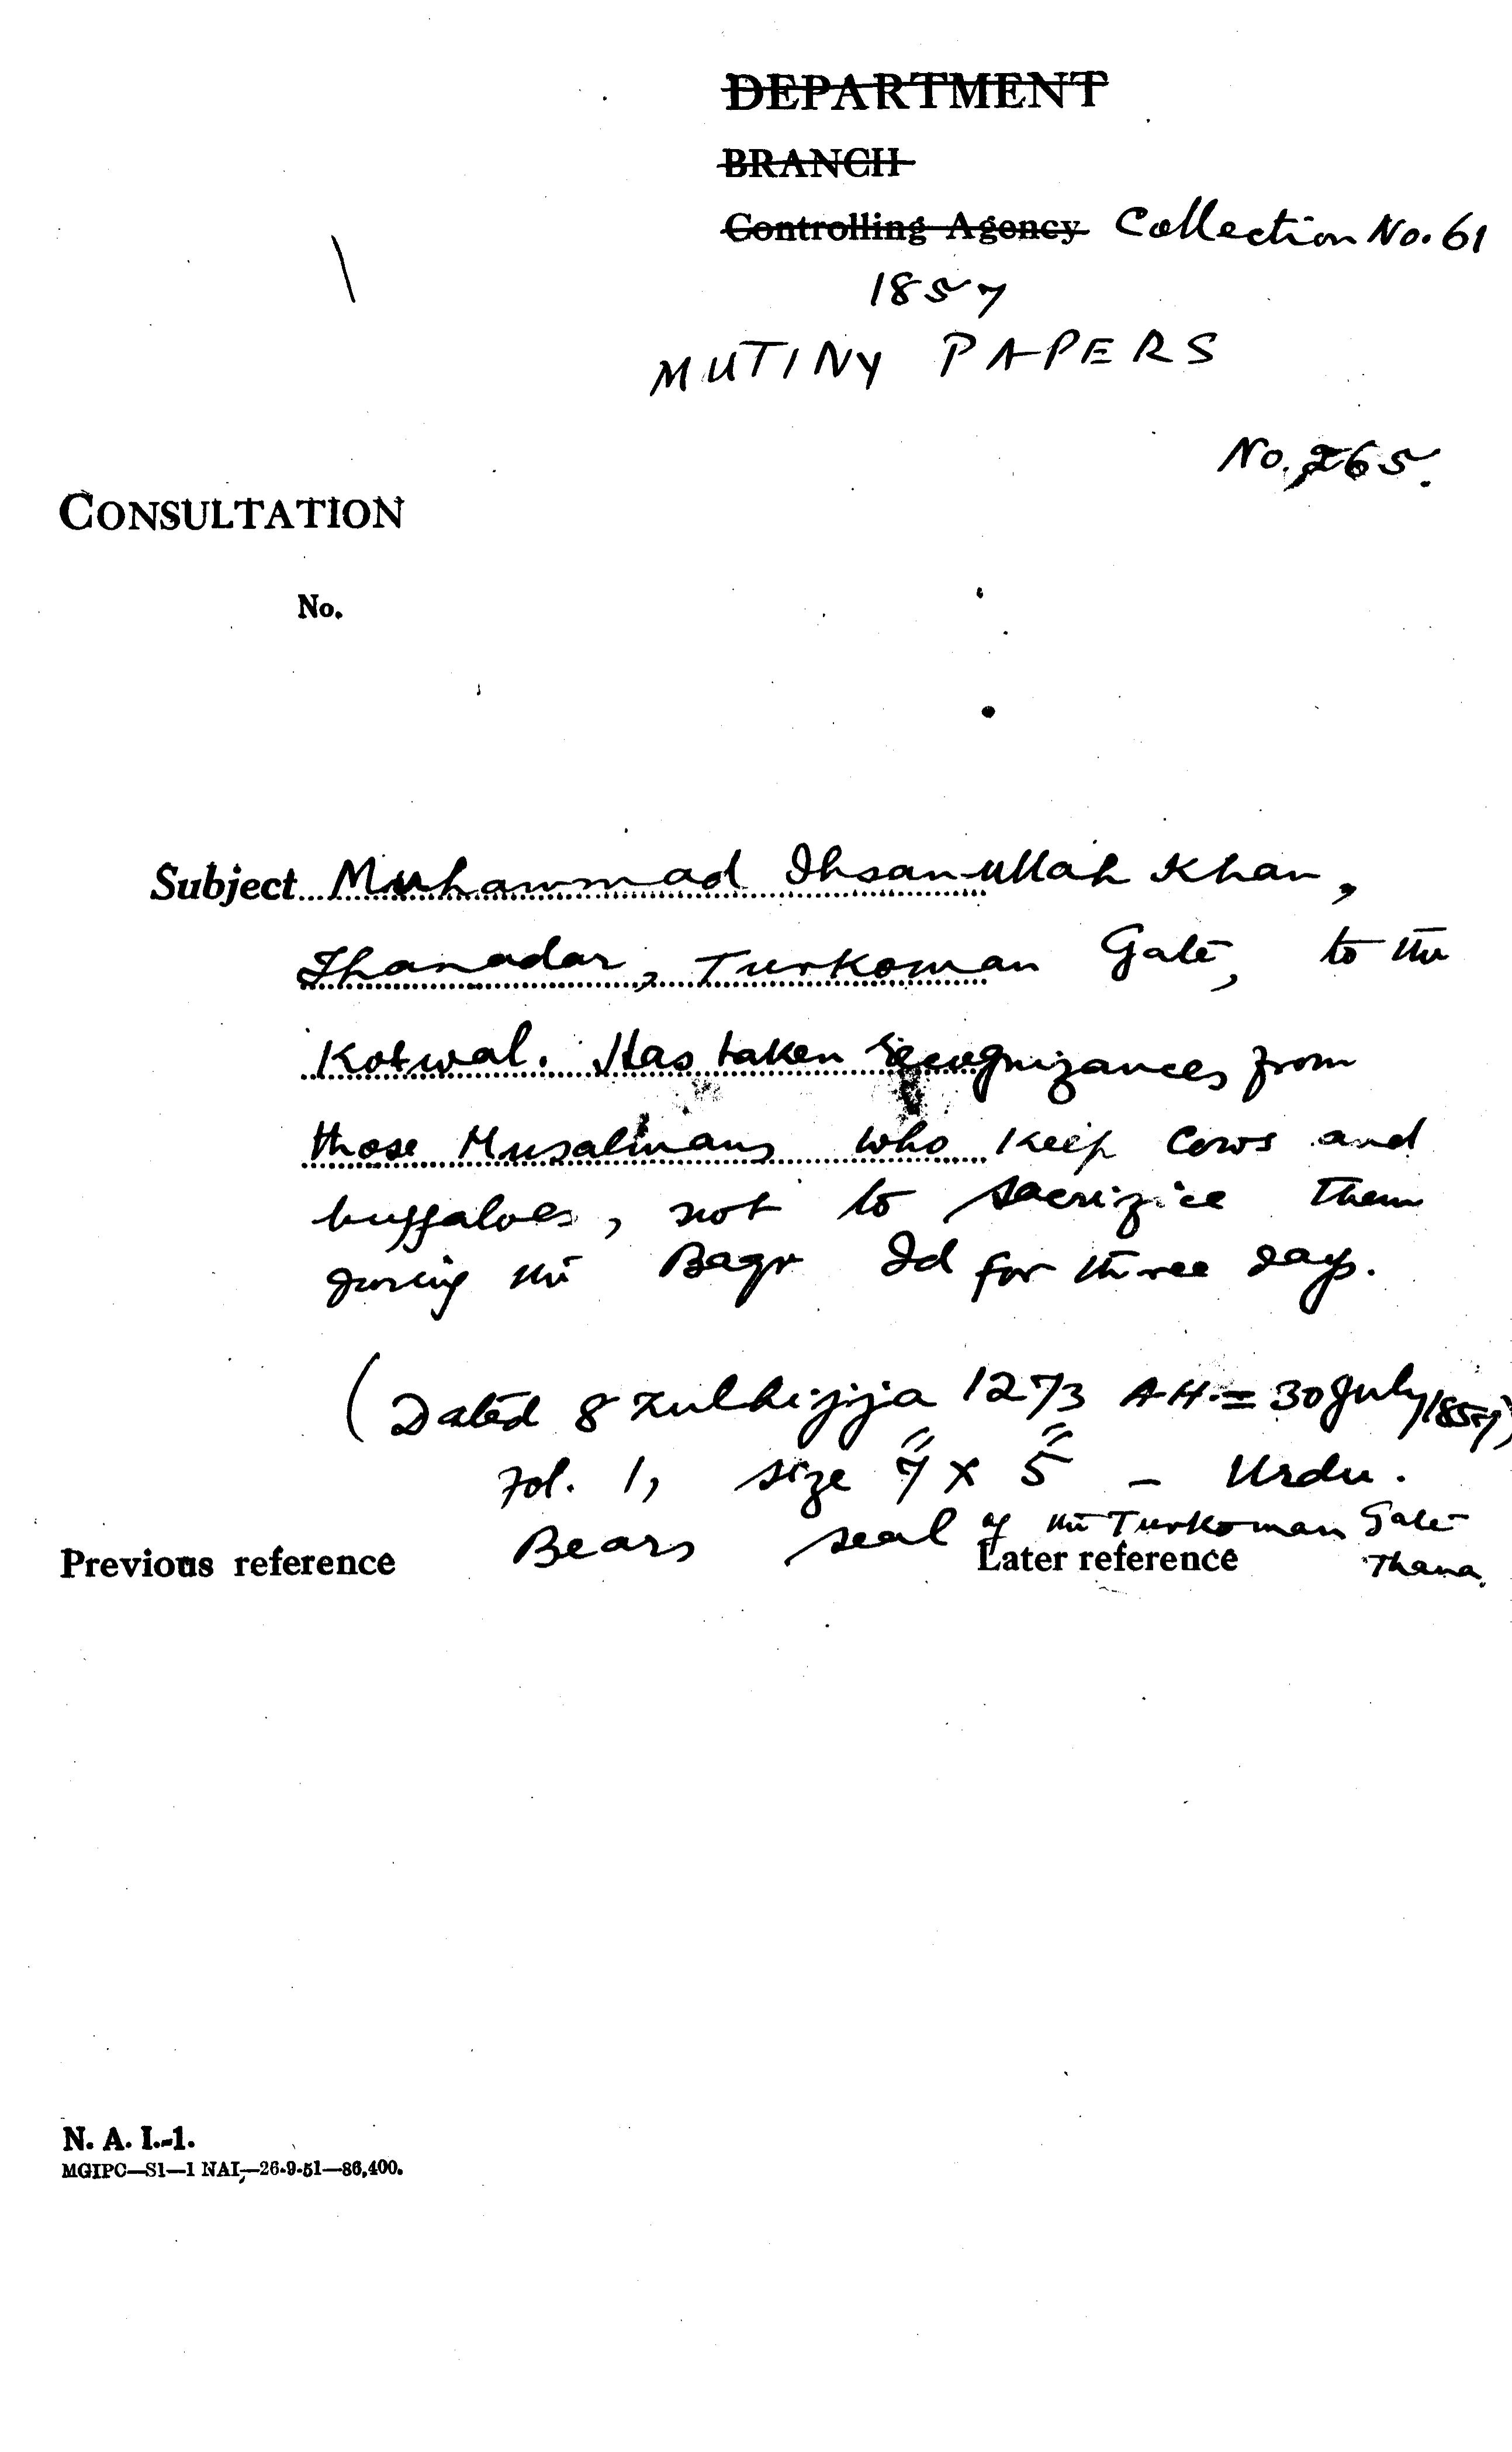 DEPARTMENT
BRANCH
Controlling Agency Collection No. 61
1857
MUTINY PAPERS
No. 265.
CONSULTATION
No.
Subject Muhammad Ihsanullah Khan,
Thanadar, Turkoman Gate, to the
Kotwal. Has taken recognizances from
those Musalmans who keep cows and
buffaloes, not to sacrifice them
during the Baqr Id for three days.
(Dated 8 Zulhijja 1273 A.H. = 30 July 1857)
Fol. 1, size 7" x 5" - Urdu.
Bears seal of the Turkoman Gate
Thana.
Previous reference Later reference
N. A. I.-1.
MGIPC—S1—1 NAI,—26-9-51—86,400.